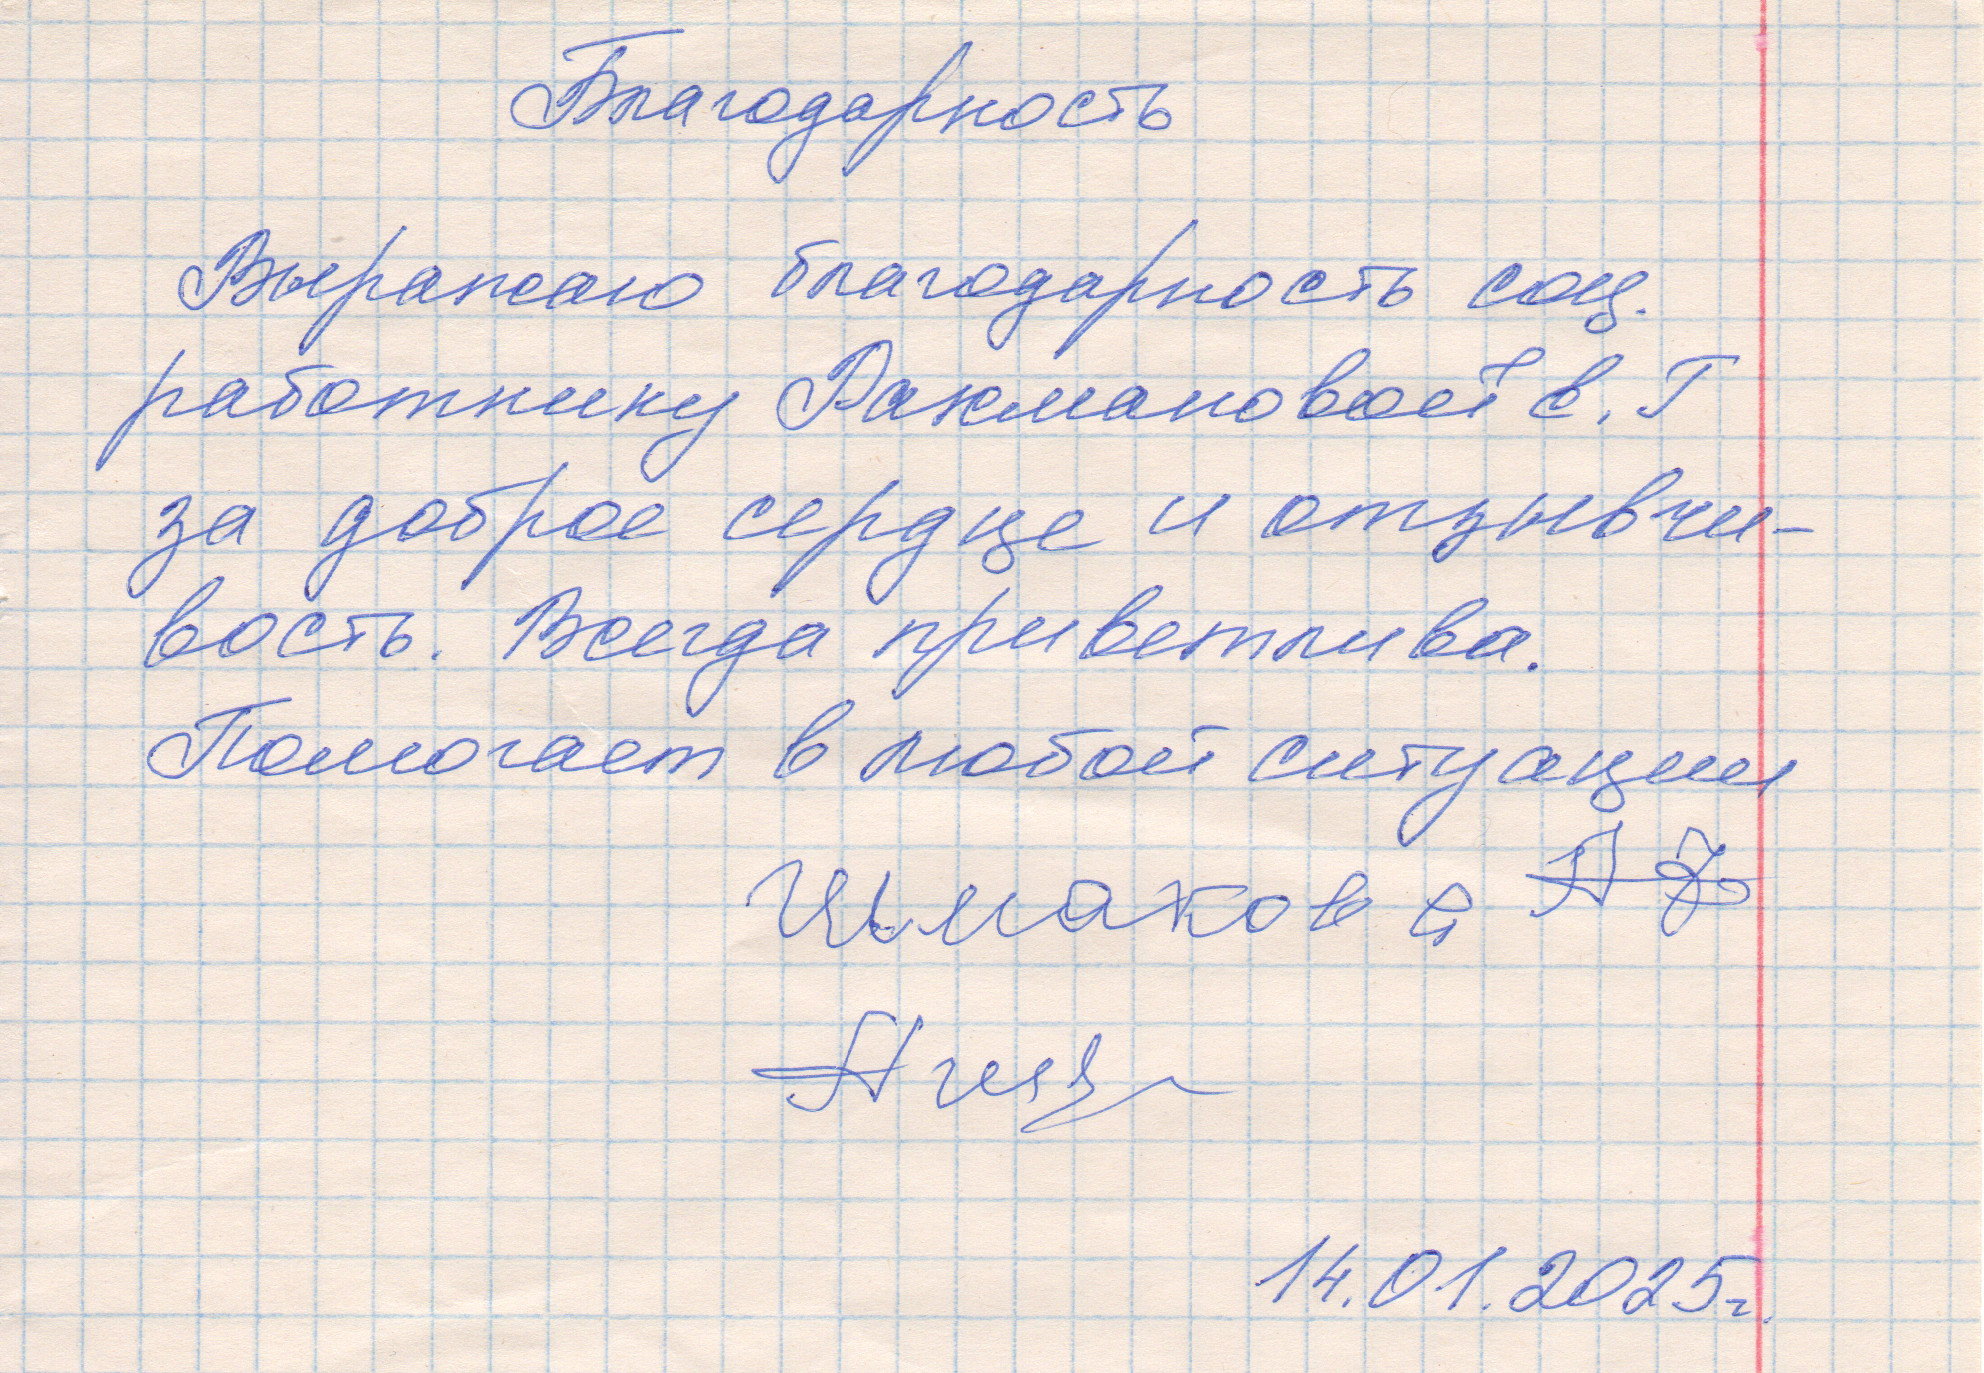 Благодарность
Выражаю благодарность соц.
работнику Рахмановой С. Г
за доброе сердце и отзывчи-
вость. Всегда приветлива.
Помогает в любой ситуации
А
14.01.2025г.